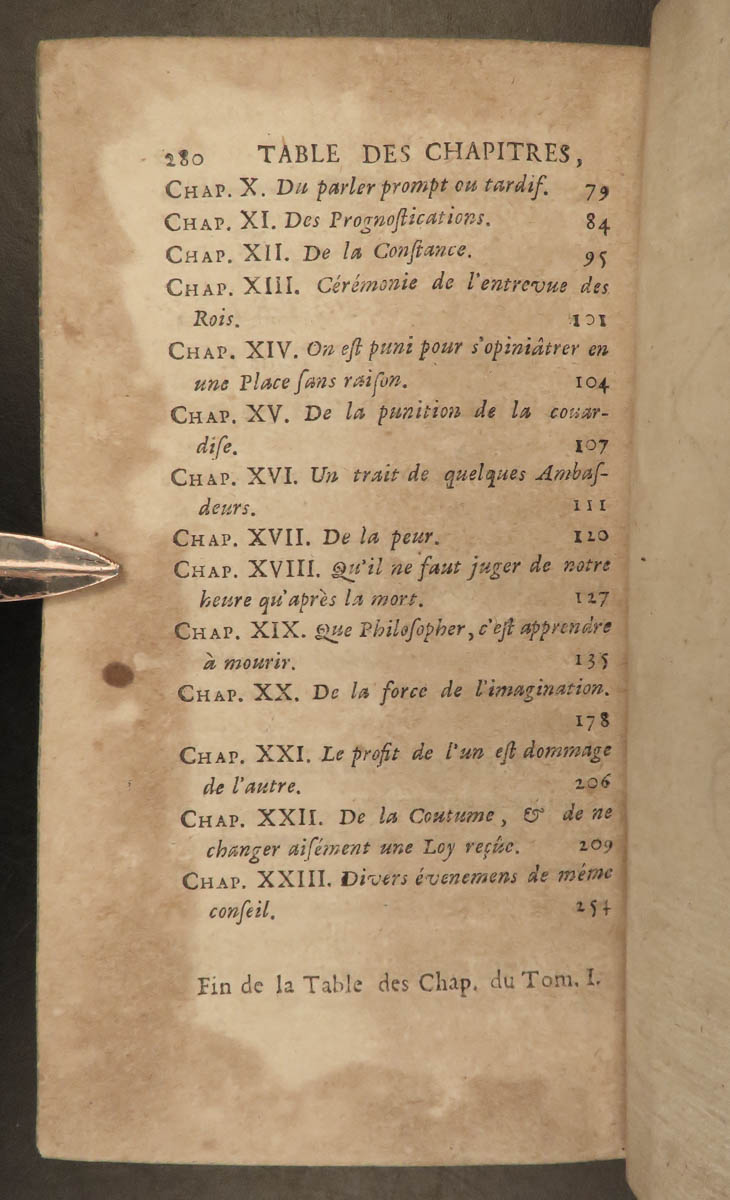 280 TABLE DES CHAPITRES,
CHAP. X. Du parler prompt ou tardif. 79
CHAP. XI. Des Prognoſtications. 84
CHAP. XII. De la Conſtance. 95
CHAP. XIII. Cérémonie de l'entrevue des
Rois. 101
CHAP. XIV. On eſt puni pour s'opiniâtrer en
une Place ſans raiſon. 104
CHAP. XV. De la punition de la couar-
diſe. 107
CHAP. XVI. Un trait de quelques Ambaſ-
deurs. 111
CHAP. XVII. De la peur. 120
CHAP. XVIII. Qu'il ne faut juger de notre
heure qu'après la mort. 127
CHAP. XIX. Que Philoſopher, c'eſt apprendre
à mourir. 135
CHAP. XX. De la force de l'imagination.
178
CHAP. XXI. Le profit de l'un eſt dommage
de l'autre. 206
CHAP. XXII. De la Coutume, & de ne
changer aiſément une Loy reçûe. 209
CHAP. XXIII. Divers évenemens de même
conſeil. 254
Fin de la Table des Chap. du Tom. I.